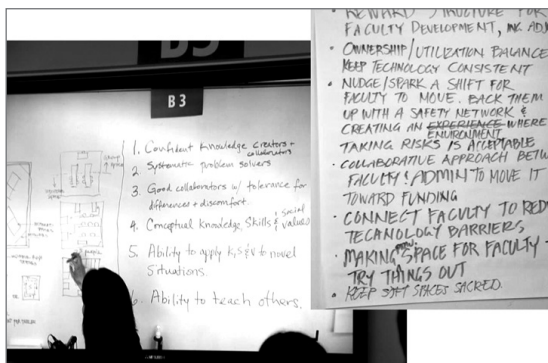 B3
B3
1. Confident knowledge creators +
collaborators
2 Systematic problem solvers
3. Good collaborators w/ tolerance for
differences + discomfort.
4. Conceptual knowledge, Skills & social
values
5. Ability to apply k, s & v to novel
situations.
6. Ability to teach others.
people
REWARD STRUCTURE FOR
FACULTY DEVELOPMENT, INC. ADJ
• OWNERSHIP/UTILIZATION BALANCE
KEEP TECHNOLOGY CONSISTENT
• NUDGE/SPARK A SHIFT FOR
FACULTY TO MOVE. BACK THEM
UP WITH A SAFETY NETWORK &
CREATING AN EXPERIENCE WHERE
ENVIRONMENT
TAKING RISKS IS ACCEPTABLE
• COLLABORATIVE APPROACH BETW
FACULTY & ADMIN TO MOVE IT
TOWARD FUNDING
• CONNECT FACULTY TO RED
TECANOLOGY BARRIERS
• MAKING SPACE FOR FACULTY -
TRY THINGS OUT
• KEEP SOFT SPACES SACRED.